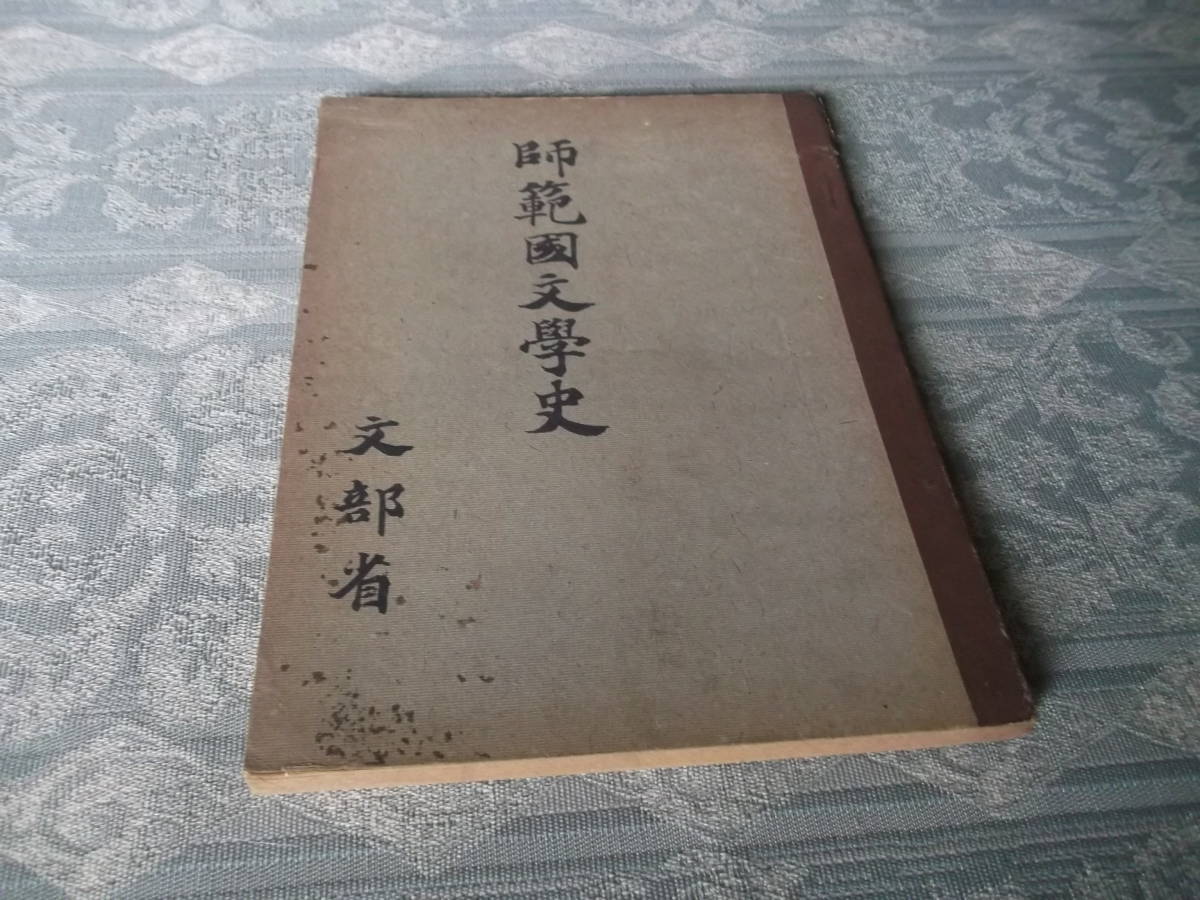 師範國文學史
文部省